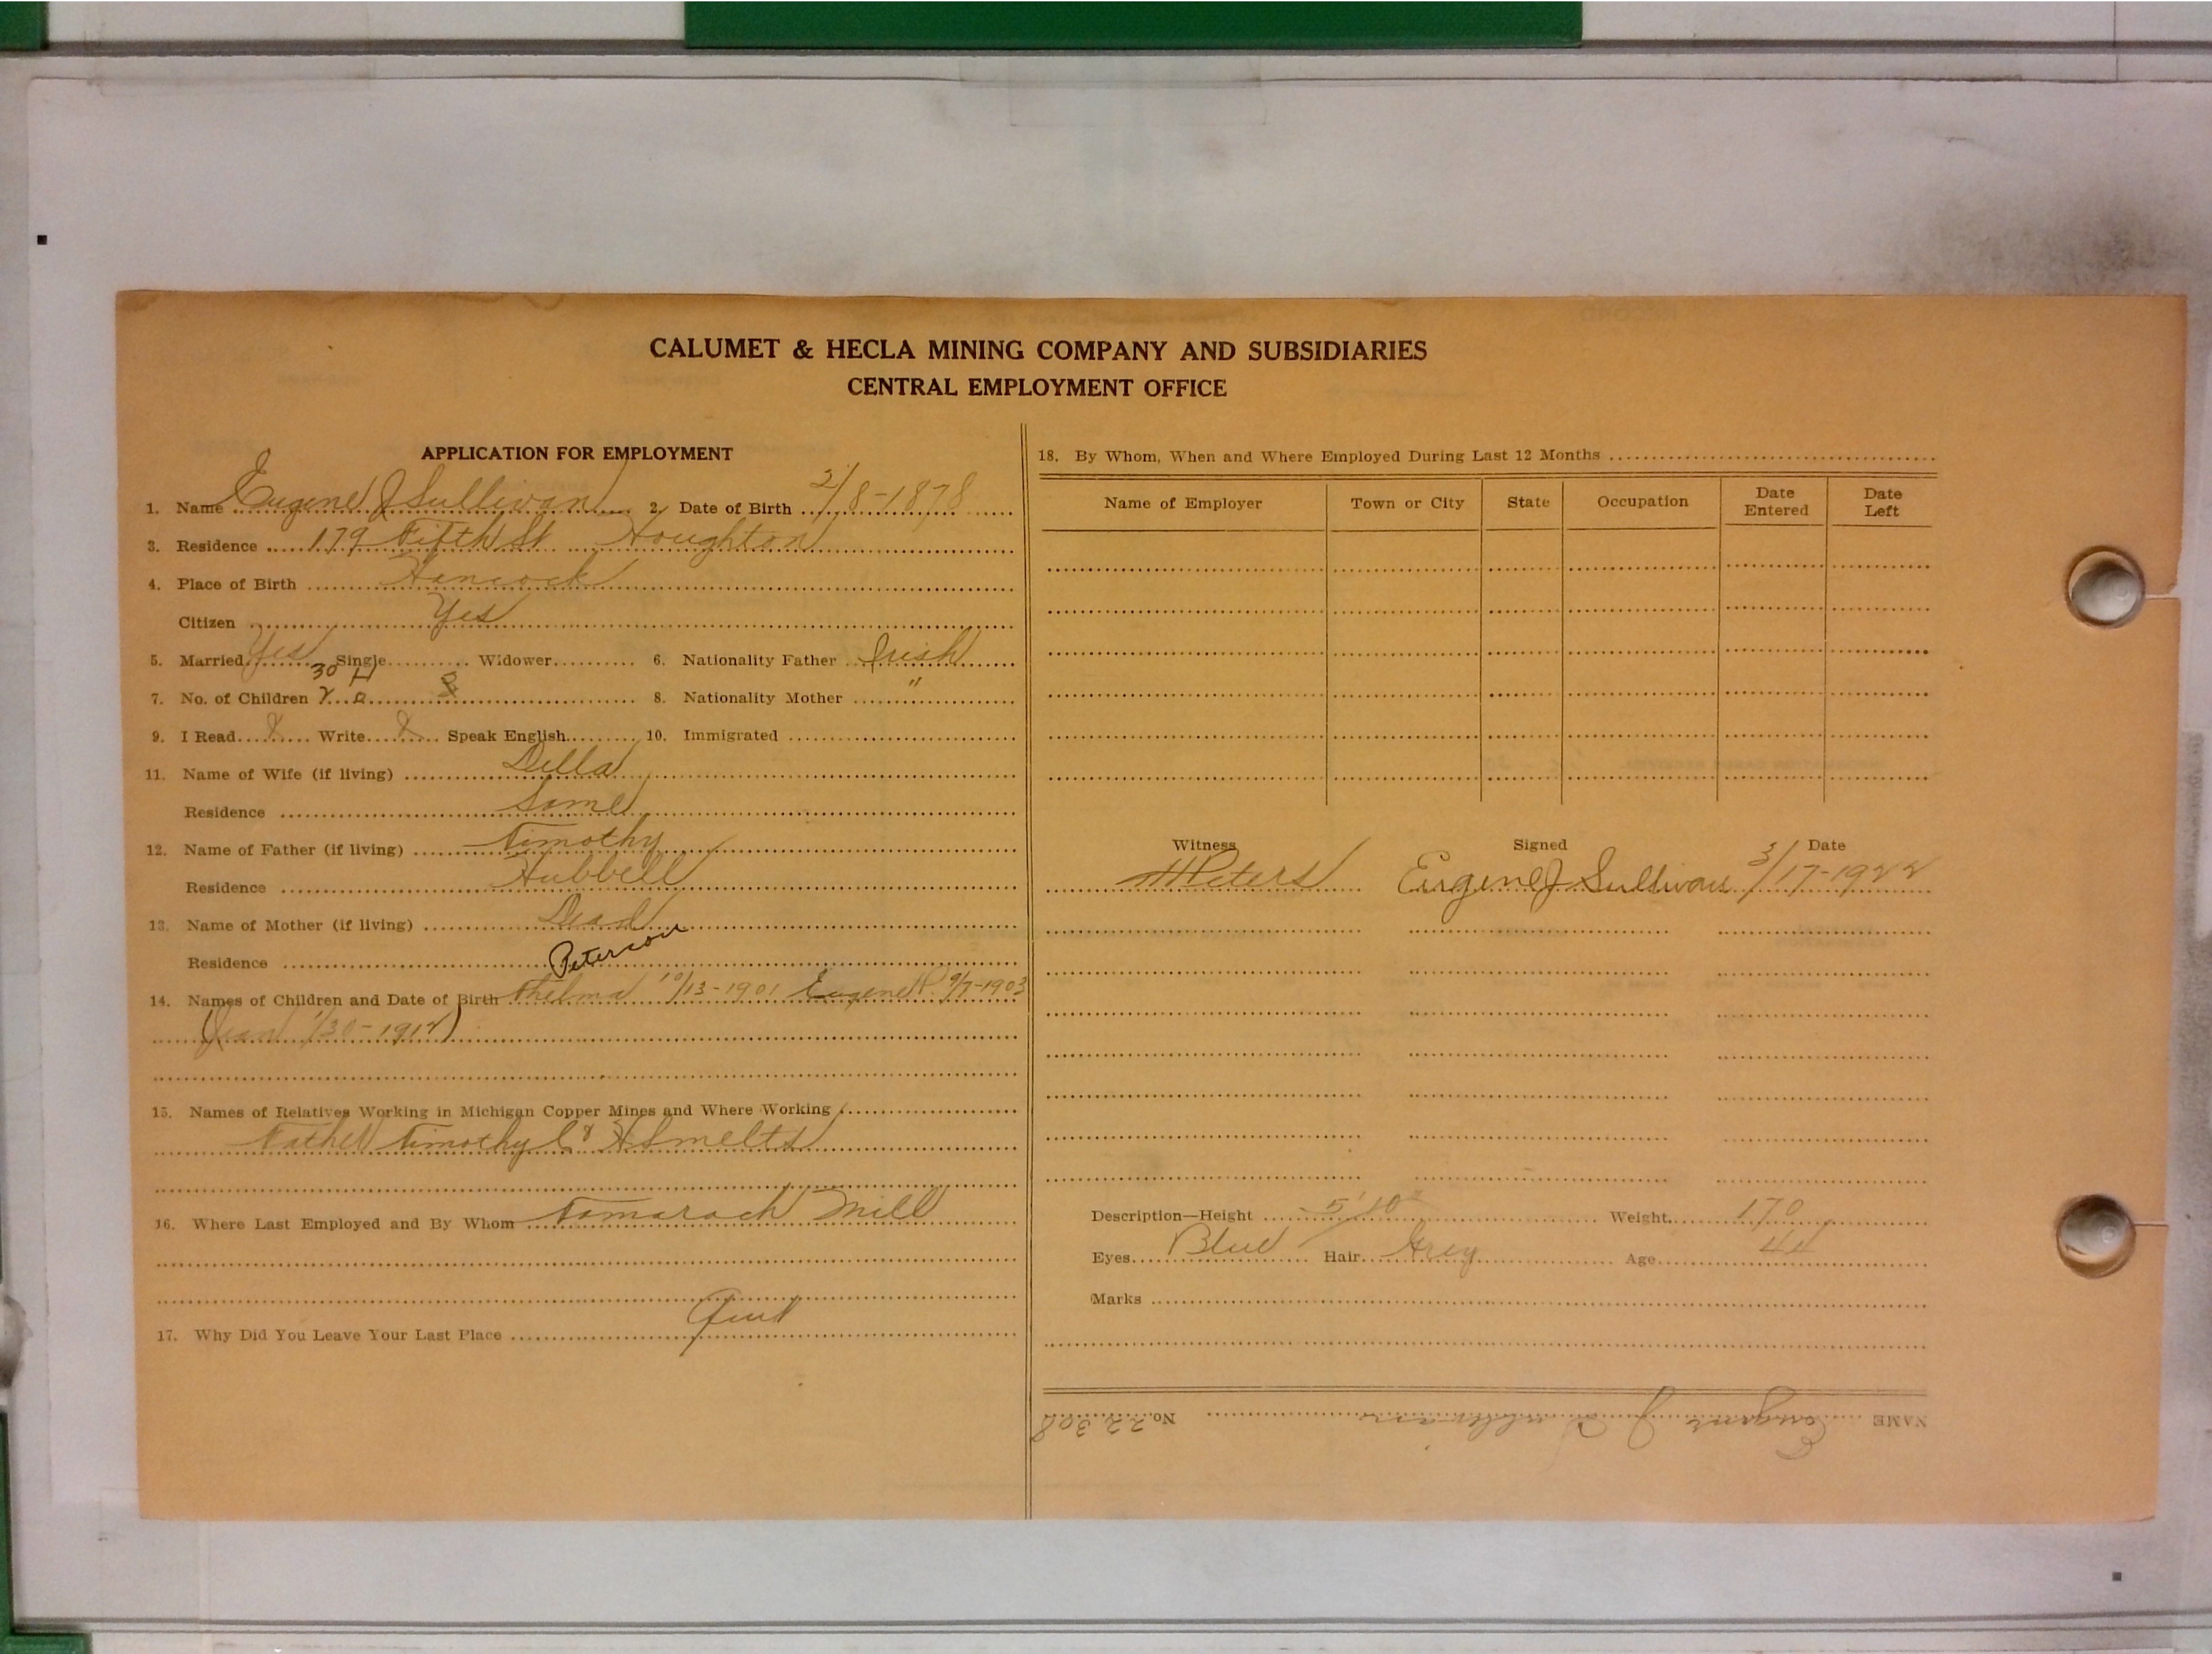 CALUMET & HECLA MINING COMPANY AND SUBSIDIARIES
CENTRAL EMPLOYMENT OFFICE
APPLICATION FOR EMPLOYMENT
1. Name Eugene J Sullivan 2. Date of Birth 2/8-1878
3. Residence 179 Fifth St Houghton
4. Place of Birth Hancock
Citizen Yes
5. Married Yes Single Widower 6. Nationality Father Irish
30 H
7. No. of Children 8. Nationality Mother "
9. I Read X Write X Speak English 10. Immigrated
11. Name of Wife (if living) Della
Residence Same
12. Name of Father (if living) Timothy
Residence Hubbell
13. Name of Mother (if living) Dead
Residence
Peterson
14. Names of Children and Date of Birth Thelma 10/13-1901 Eugene P. 9/7-1903
(Jean 1/30-1912)
15. Names of Relatives Working in Michigan Copper Mines and Where Working
Father Timothy C & H Smelts
16. Where Last Employed and By Whom Tamarack Mill
17. Why Did You Leave Your Last Place Quit
18. By Whom, When and Where Employed During Last 12 Months
Name of Employer Town or City State Occupation Date Entered Date Left
Witness Signed Date
Peters Eugene J Sullivan 3/17-1922
Description—Height 5'10" Weight 170
Eyes Blue Hair Grey Age 44
Marks
NAME Eugene J Sullivan No. 22308